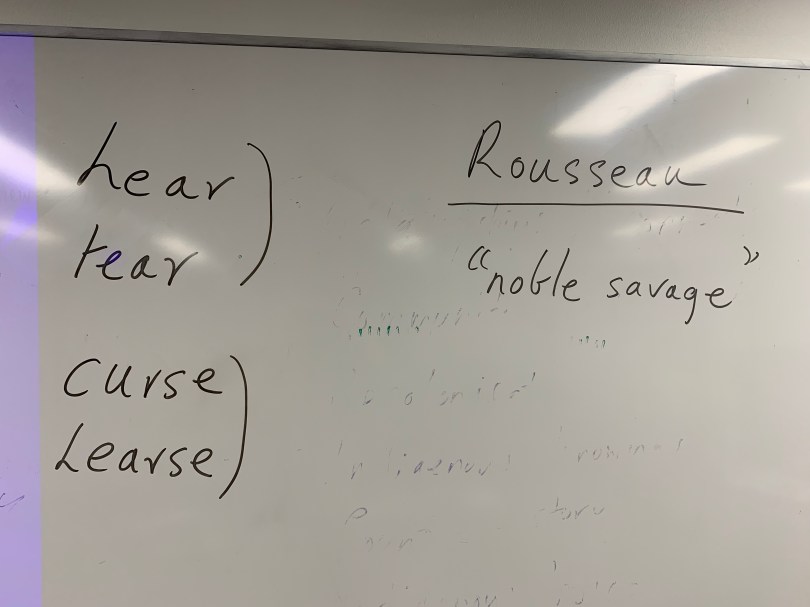 hear
tear
curse
hearse
Rousseau
"noble savage"